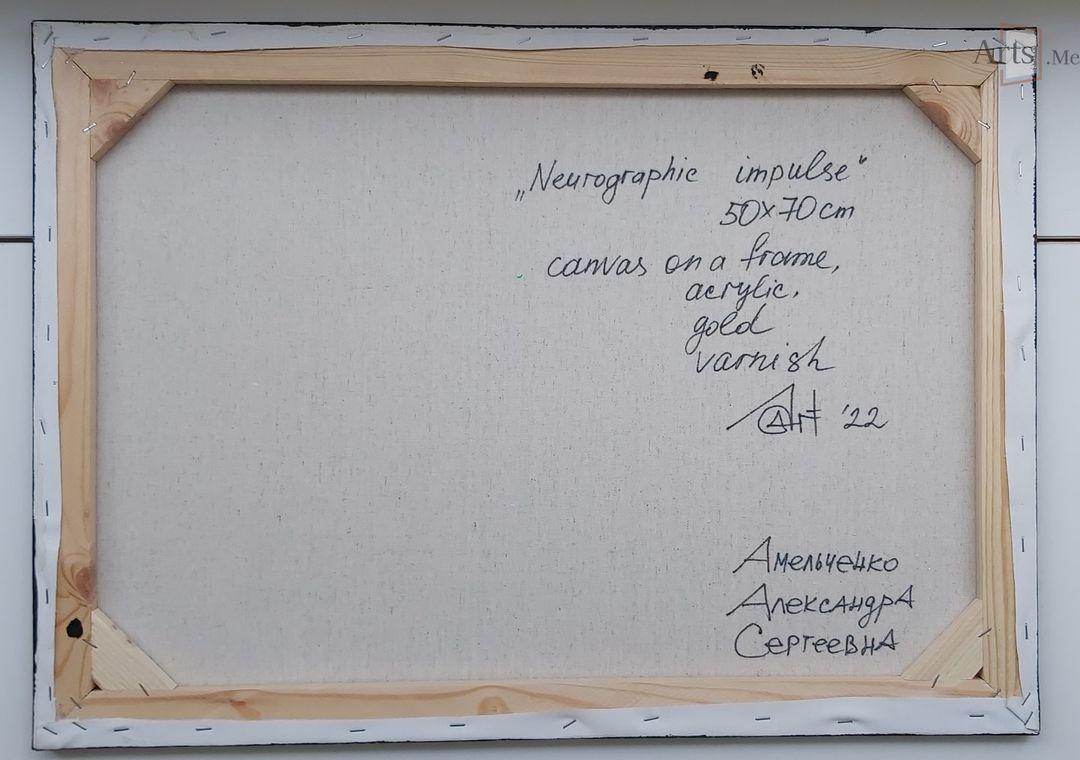 Arts.Me
„Neurographic impulse“
50x70cm
canvas on a frame,
acrylic,
gold
varnish
Art '22
Амельченко
Александра
Сергеевна